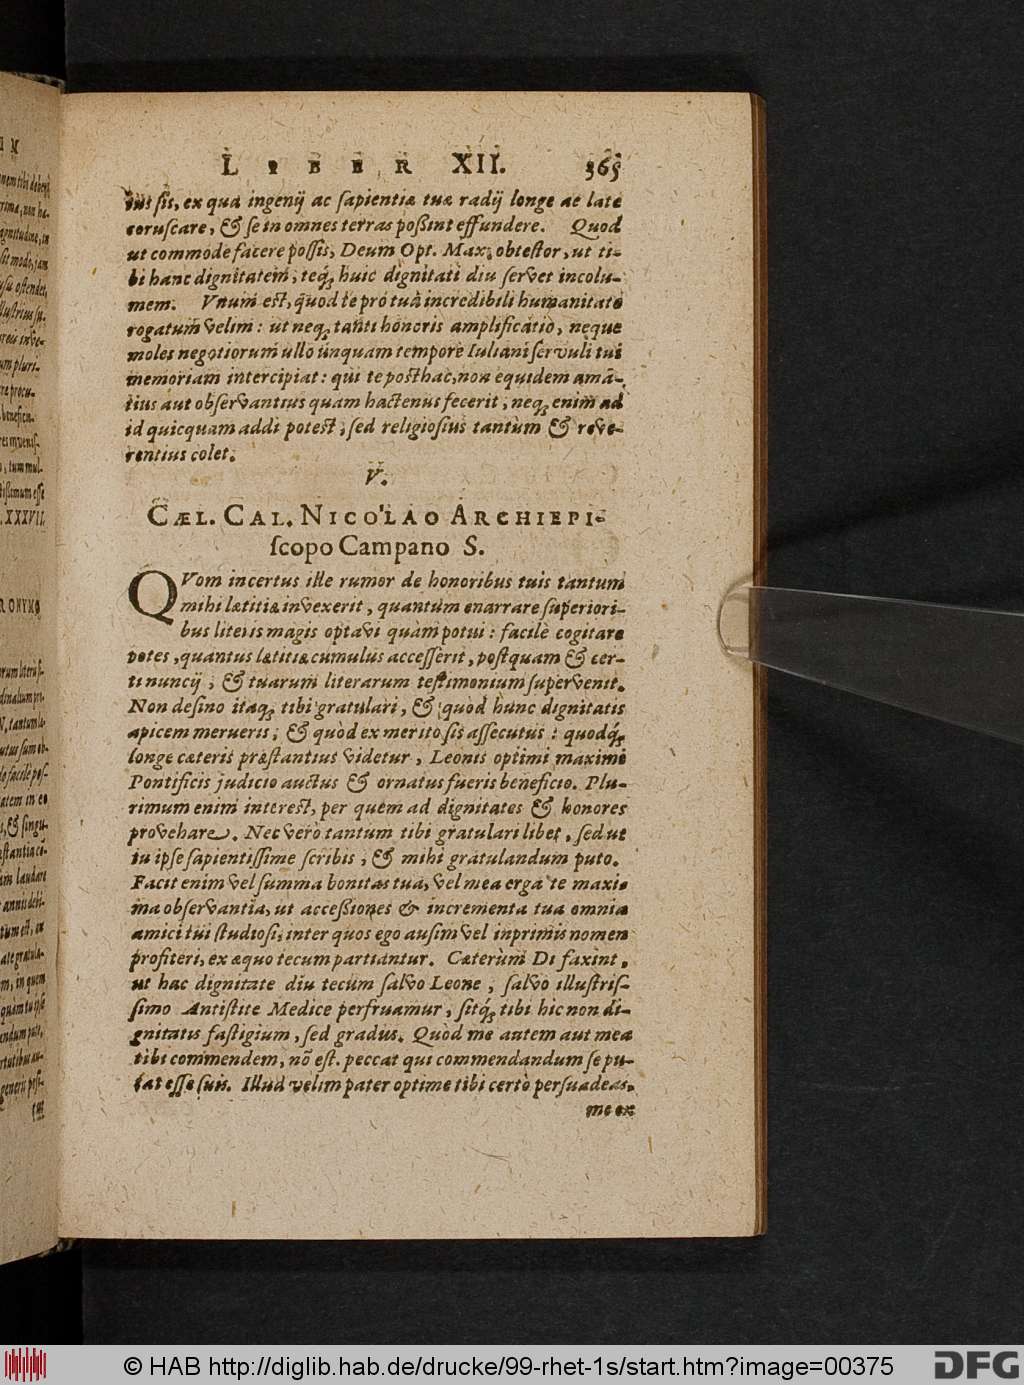 LIBER XII. 365
tui sit, ex qua ingenij ac sapientiæ tuæ radij longe ac late
coruscare, & se in omnes terras poßint effundere. Quod
ut commode facere possis, Deum Opt. Max. obtestor, ut ti-
bi hanc dignitatem, teq́; huic dignitati diu servet incolu-
mem. Vnum est, quod te pro tuâ incredibili humanitate
rogatum velim: ut neq; tanti honoris amplificatio, neque
moles negotiorum ullo unquam tempore Iuliani servuli tui
memoriam intercipiat: qui te posthac, non equidem amã-
tius aut observantius quam hactenus fecerit, neq; enim ad
id quicquam addi potest, sed religiosius tantùm & reve-
rentius colet.
V.
CÆL. CAL. NICOLAO ARCHIEPI-
scopo Campano S.
QVom incertus ille rumor de honoribus tuis tantum
mihi lætitiæ invexerit, quantùm enarrare superiori-
bus literis magis optavi quàm potui: facilè cogitare
potes, quantus lætitiæ cumulus accesserit, postquam & cer-
ti nuncij, & tuarum literarum testimonium supervenit.
Non desino itaq; tibi gratulari, & quod hunc dignitatis
apicem merueris, & quòd ex merito sis assecutus: quodq́;
longe cæteris præstantius videtur, Leonis optimi maximi
Pontificis judicio auctus & ornatus fueris beneficio. Plu-
rimum enim interest, per quem ad dignitates & honores
provehare. Nec vero tantum tibi gratulari libet, sed ut
tu ipse sapientissime scribis, & mihi gratulandum puto.
Facit enim vel summa bonitas tua, vel mea erga te maxi-
ma observantia, ut acceßiones & incrementa tua omnia
amici tui studiosi, inter quos ego ausim vel inprimis nomen
profiteri, ex æquo tecum partiantur. Cæterùm Di faxint,
ut hac dignitate diu tecum salvo Leone, salvo illustris-
simo Antistite Medice perfruamur, sitq́; tibi hic non di-
gnitatis fastigium, sed gradus. Quòd me autem aut mea
tibi commendem, nõ est. peccat qui commendandum se pu-
tat esse suis. Illud velim pater optime tibi certò persuadeas,
me ex
© HAB http://diglib.hab.de/drucke/99-rhet-1s/start.htm?image=00375
DFG